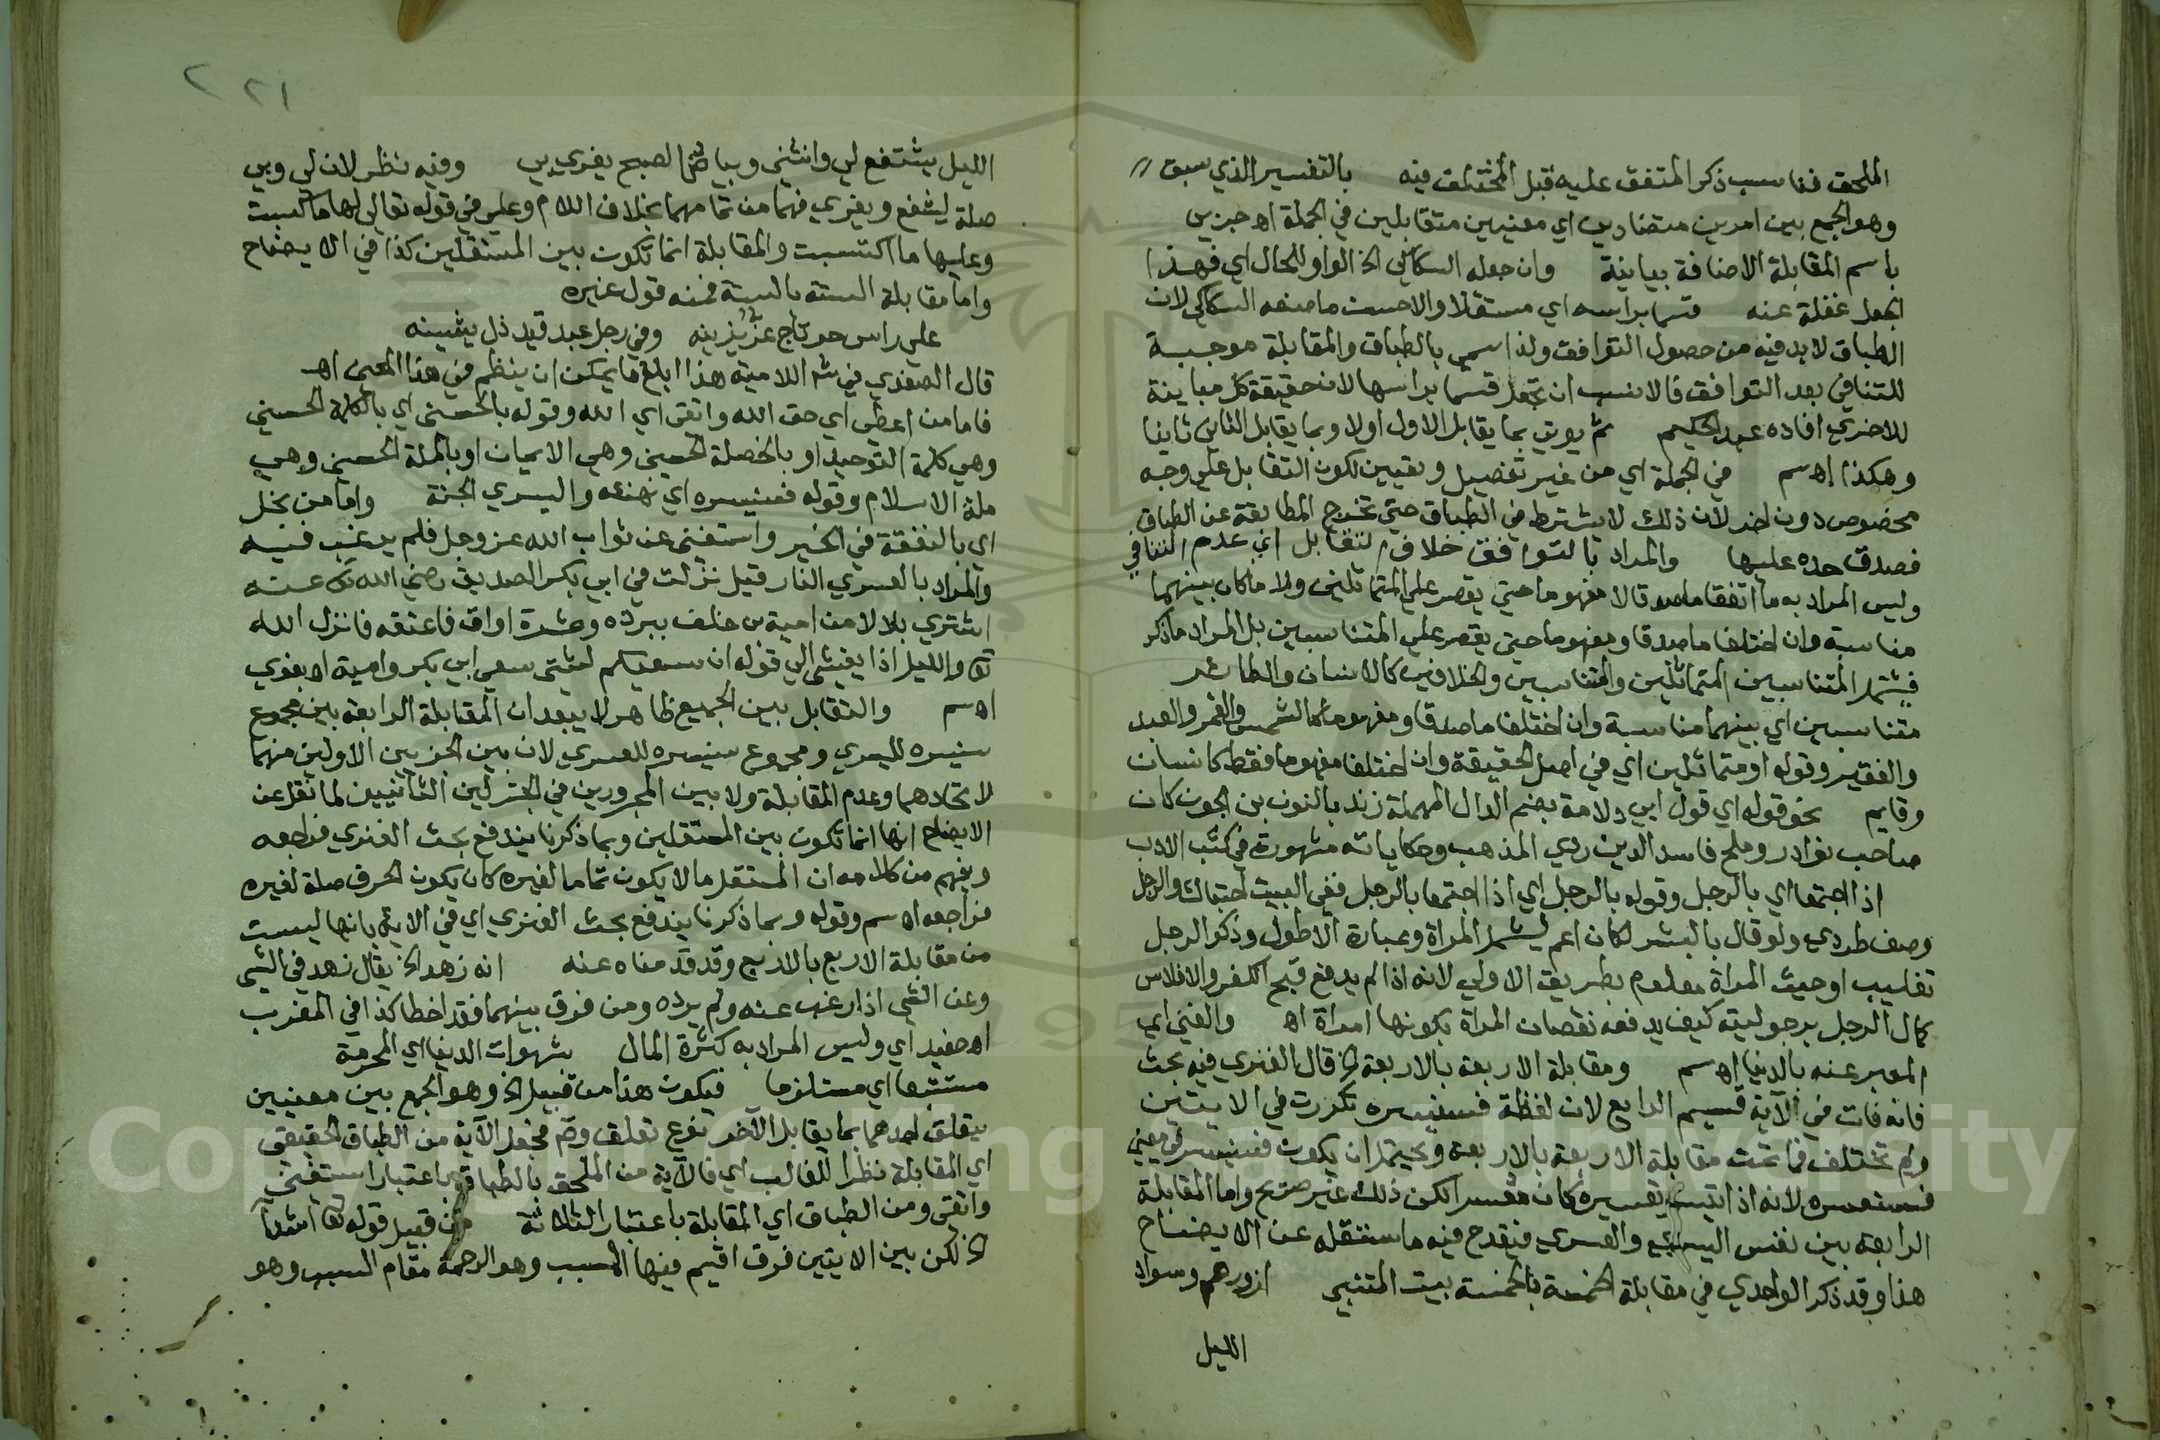 الملحق فناسب ذكر المتفق عليه قبل المختلف فيه بالتفسير الذي سبق //
وهو الجمع بين امرين متضادين اي معنيين متقابلين في الجملة اه جزيي
باسم المقابلة الاضافة بيانية وان جعله السكاكي الخ الواو للحال اي فهذا
الجعل غفلة عنه قسما براسه اي مستقلا والاحسن ما صنعه السكاكي لان
الطباق لا بد فيه من حصول التوافق ولذا سمي بالطباق والمقابلة موجبة
للتنافي بعد التوافق فالانسب ان تجعل قسما براسها لان حقيقة كل مباينة
للاخري افاده عبد الحكيم ثم يوتي بما يقابل الاول اولا وبما يقابل الثاني ثانيا
وهكذا اه سم في الجملة اي من غير تفصيل وتعيين لكون التقابل علي وجه
مخصوص دون اخر لان ذلك لا يشترط في الطباق حتي تخرج المطابقة عن الطباق
فصدق حده عليها والمراد بالتوافق خلاف التقابل اي عدم التنافي
وليس المراد به ما اتفقا ماصدقا لا مفهوما حتي يقصر علي المتماثلين ولا ما كان بينهما
مناسبة وان اختلفا ماصدقا ومفهوما حتي يقصر علي المتناسبين بل المراد ما ذكر
فيشمل المتناسبين المتماثلين والمتناسبين والخلافين كالانسان والطائر
متناسبين اي بينهما مناسبة وان اختلفا ماصدقا ومفهوما كالشمس والقمر والعبد
والفقير وقوله او متماثلين اي في اصل الحقيقة وان اختلفا مفهوما فقط كانسان
وقايم نحو قوله اي قول ابي دلامة بضم الدال المهملة زند بالنون بن الجون كان
صاحب نوادر وملح فاسد الدين ردي المذهب وحكاياته مشهورة في كتب الادب
اذا اجتمعا اي بالرجل وقوله بالرجل اي اذا اجتمعا بالرجل ففي البيت احتباك والرجل
وصف طردي ولو قال بالبشر لكان اعم ليشمل المراة وعبارة الاطول وذكر الرجل
تغليب او حيث المراة معلوم بطريق الاولي لانه اذا لم يدفع قبح الكفر والافلاس
كمال الرجل برجوليته كيف يدفعه نقصان المراة بكونها امراة اه والغني اي
المعبر عنه بالدنيا اه سم ومقابلة الاربعة بالاربعة الخ قال الفنري فيه بحث
فانه فات في الآية قسيم الرابع لان لفظة فسنيسره تكررت في الايتين
ولم تختلف فما تمت مقابلة الاربعة بالاربعة ويحتمل ان يكون فسنيسر في معني
فسنعسره لانه اذا تيسر تفسيره كان مفسرا لكن ذلك غير صريح واما المقابلة
الرابعة بين نفس اليسري والعسري فيقدح فيه ما ستنقله عن الايضاح
هذا وقد ذكر الواحدي في مقابلة الخمسة بالخمسة بيت المتنبي ازورهم وسواد
الليل
٢٢١ ٢
الليل يشفع لي وانثني وبياض الصبح يغري بي وفيه نظر لان لي وبي
صلة ليشفع ويغري فهما من تمامهما بخلاف اللام وعلي في قوله تعالي لها ما كسبت
وعليها ما اكتسبت والمقابلة انما تكون بين المستقلين كذا في الايضاح
واما مقابلة الستة بالستة فمنه قول عنيره
علي راس حر تاج عز يزينه وفي رجل عبد قيد ذل يشينه
قال الصفدي في شرح اللامية هذا ابلغ ما يمكن ان ينظم في هذا المعني اه
فاما من اعطي اي حق الله واتقي اي الله وقوله بالحسني اي بالكلمة الحسني
وهي كلمة التوحيد او بالخصلة الحسني وهي الايمان او بالملة الحسني وهي
ملة الاسلام وقوله فسنيسره اي نهيئه واليسري الجنة واما من بخل
اي بالنفقة في الخير واستغني عن ثواب الله عز وجل فلم يرغب فيه
والمراد بالعسري النار قيل نزلت في ابي بكر الصديق رضي الله تعا عنه
اشتري بلالا من امية بن خلف ببرده وعشرة اواق فاعتقه فانزل الله
تعا والليل اذا يغشي الي قوله ان سعيكم لشتي سعي ابي بكر وامية اه بغوي
اه سم والتقابل بين الجميع ظاهر لا يبعد ان المقابلة الرابعة بين مجموع
سنيسره لليسري ومجموع سنيسره للعسري لان بين الجزيين الاولين منهما
لاتحادهما وعدم المقابلة ولا بين المجرورين في الجزاين الثانيين لما نقل عن
الايضاح انها انما تكون بين المستقلين وبما ذكرنا يندفع بحث الفنري فراجعه
ويفهم من كلامه ان المستقل ما لا يكون تماما لغيره كان يكون الحرف صلة لغيره
فراجعه اه سم وقوله وبما ذكرنا يندفع بحث الفنري اي في الاية بانها ليست
من مقابلة الاربع بالاربع وقد قدمناه عنه انه زهد الخ يقال زهد في الشي
وعن الشي اذا رغب عنه ولم يرده ومن فرق بينهما فقد اخطا كذا في المغرب
اه حفيد اي وليس المراد به كثرة المال بشهوات الدنيا اي المحرمة
مستتبعا اي مستلزما فيكون هذا من قبيل الخ وهو الجمع بين معنيين
يتعلق احدهما بما يقابل الآخر نوع تعلق ولم تجعل الآية من الطباق الحقيقي
اي المقابلة نظرا للغالب اي فالآية من الملحق بالطباق باعتبار استغني
واتقي ومن الطباق اي المقابلة باعتبار الثلاثة من قبيل قوله تعا اشدا
الخ لكن بين الايتين فرق اقيم فيها المسبب وهو الرحمة مقام السبب وهو